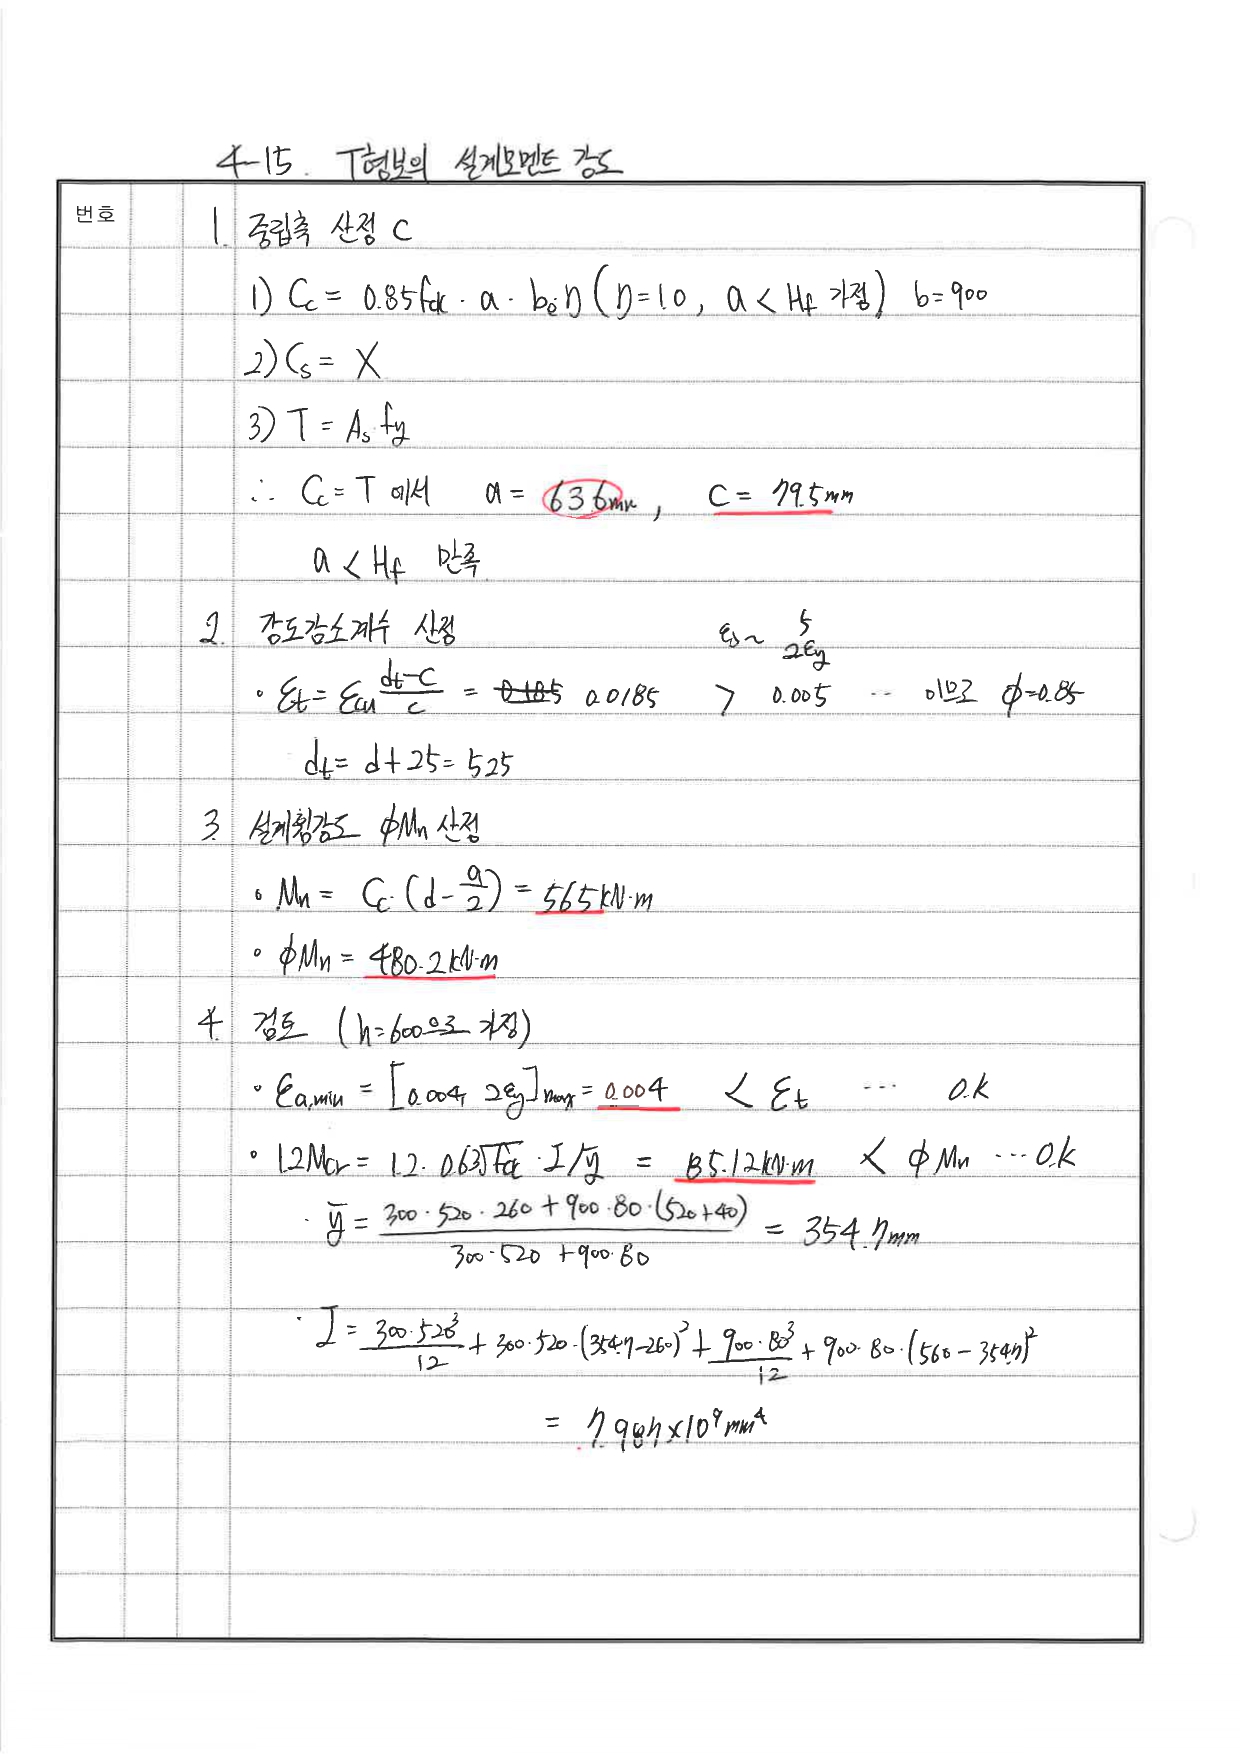 4-15. T형보의 설계모멘트 강도
번호
1. 중립축 산정 C
1) Cc = 0.85fck · a · be η (η=1.0, a < Hf 가정) b=900
2) Cs = X
3) T = As fy
∴ Cc = T 에서 a = 63.6mm, C = 79.5mm
a < Hf 만족
2. 강도감소계수 산정
εs ~ 5
2εy
· εt = εcu (dt-c)/c = 0.0185 > 0.005 ·· 이므로 φ=0.85
dt = d+25 = 525
3. 설계휨강도 φMn 산정
· Mn = Cc · (d - a/2) = 565kN·m
· φMn = 480.2kN·m
4. 검토 (h=600으로 가정)
· εa,min = [0.004, 2εy]max = 0.004 < εt ··· O.k
· 1.2Mcr = 1.2 · 0.63√fck · I/ȳ = 85.12kN·m < φMn ··· O.k
· ȳ = (300·520·260 + 900·80·(520+40)) / (300·520 + 900·80) = 354.7mm
· I = 300·520³/12 + 300·520·(354.7-260)² + 900·80³/12 + 900·80·(560-354.7)²
= 7.987×10⁹mm⁴